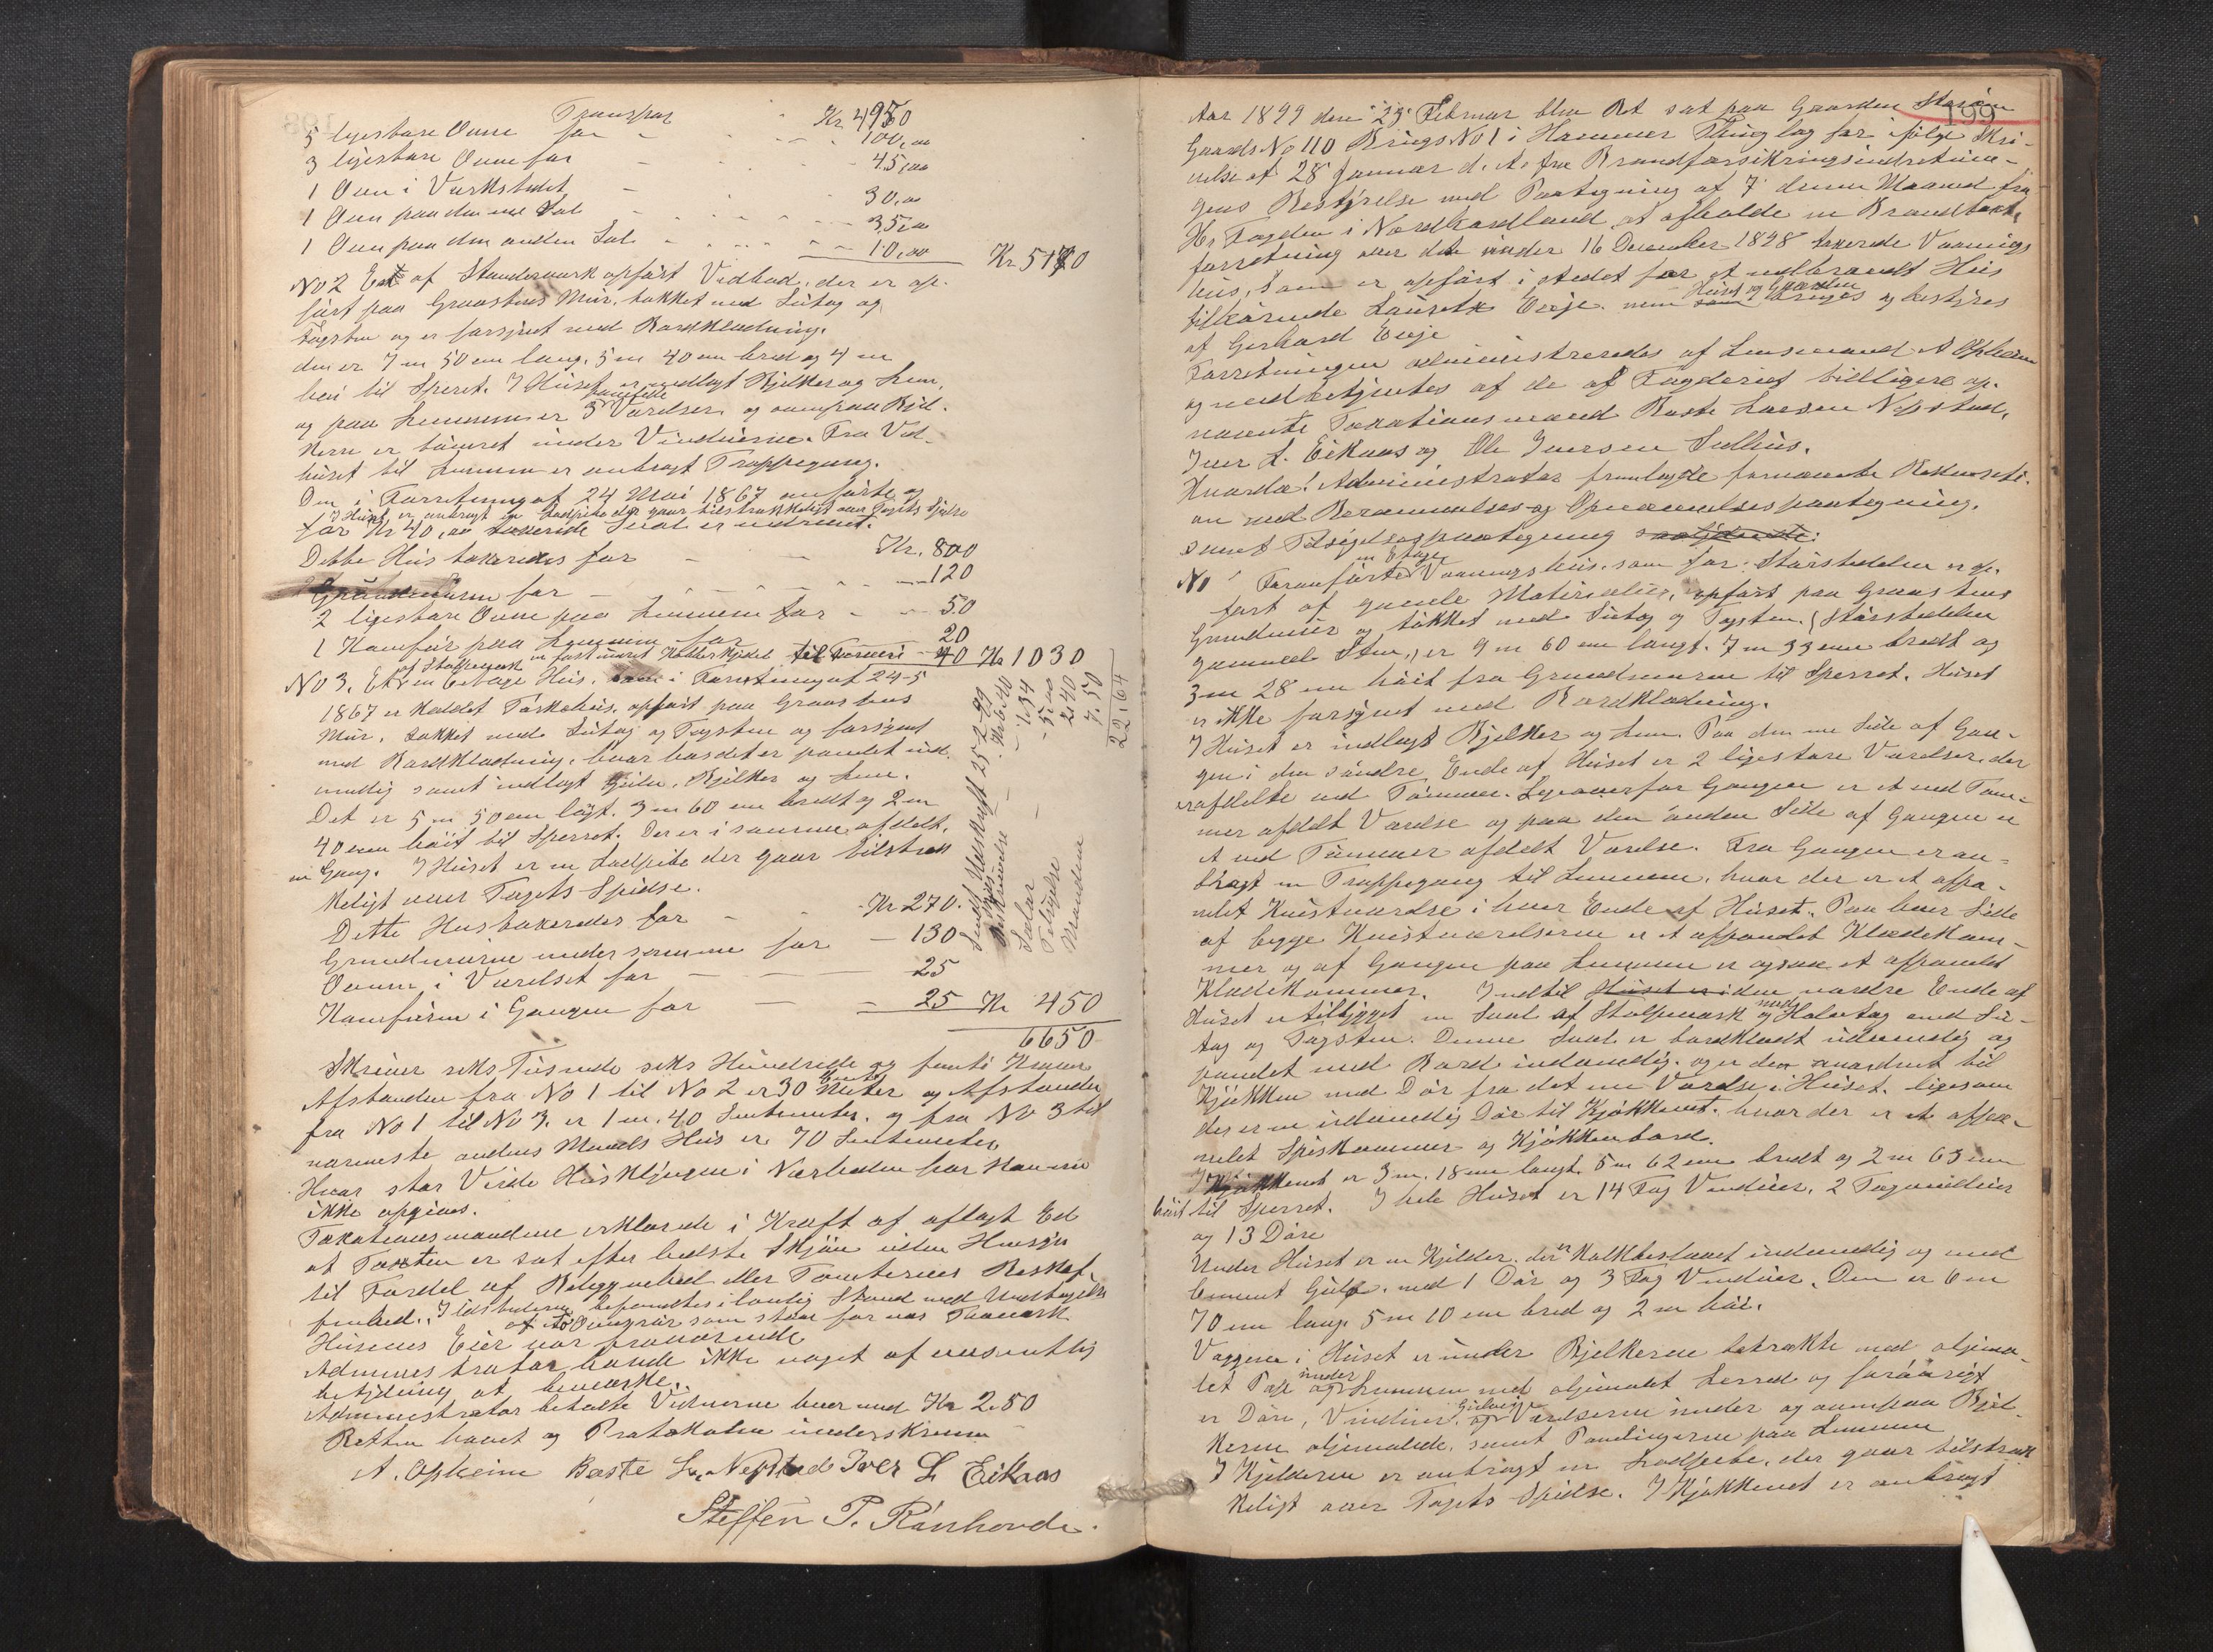 Transport Kr 4950
5 ligesbare Ovne for 100,00
3 ligesbare Ovne for 45,00
1 Ovn i Værkstedet 30,00
1 Ovn paa den ene Sal 35,00
1 Ovn paa den anden Sal 10,00 Kr 5170
No 2 Et af Standerværk opført Vedbod, der er op-
ført paa Graastens Mur, takket med Sutag og
Tagsten og er forsynet med Bordklædning.
den er 7 m 50 cm lang, 5 m 40 cm bred og 4 m
høi til Sperret. I Huset er indlagt Bjelker og Lem,
og paa Lemmen er 3 panelede Værelser og ovenpaa Bjel-
kerne er tømret under Vinduerne. Fra Ved-
huset til Lemmen er anbragt Trappegang.
Den i Forretning af 24 Mai 1867 anførte og
I Huset er anbragt en Ladpibe der gaar tilstrækkeligt over Tagets Spidse
for Kr 40,00 takserede Sval er nedrevet.
Dette Hus takseredes for Kr. 800
Grundmuren for 120
2 ligesbare Ovne paa Lemmen for 50
1 Kamfur paa Lemmen for 20
en fastmuret Kobberkjedel 40 Kr 1030
No 3. Et af Stolpeværk en Etage Hus, som i Forretning af 24-5
1867 er kaldet Tørkehus, opført paa Graastens
Mur, takket med Sutag og Tagsten og forsynet
med Bordklædning, hvor hosdet er panelet ind-
vendig samt indlagt Gulv, Bjelker og Lem.
Det er 5 m 50 cm langt, 3 m 60 cm bredt og 2 m
40 cm høit til Sperret. Der er i samme afdelt
en Gang. I Huset er en Ladpibe der gaar tilstræk
keligt over Tagets Spidse.
Dette Hus takseredes for Kr 270.
Grundmuren under samme for 130
Ovnen i Værelset for 25
Kamfuren i Gangen for 25 Kr 450
6650
Skriver seks Tusinde seks Hundrede og femti Kroner
Afstanden fra No 1 til No 2 er 30 Meter og Afstanden
fra No 1 til No 3. er 1 m. 40 Centimeter. og fra No 3 til
nærmeste anden Mands Hus er 70 Centimeter
Hvor stor Værdi Husklyngen i Nærheden har kan nu
ikke opgives.
Taxationsmændene erklærede i Kraft af aflagt Ed
at Taxten er sat efter bedste Skjøn uden Hensyn
til Fordel af Beliggenhed eller Tomternes Beskaf-
fenhed. Ildstederne befandtes i lovlig Stand med Undtagelse
af to Ovnsrør som staar for nær Træværk
Husenes Eier var fraværende
Administrator havde ikke noget af væsentlig
betydning at bemærke.
Administrator betalte Vidnerne hver med Kr 2.50
Retten hævet og Protokollen underskreven
A. Opheim Baste L. Nepstad Iver L Eikaas
Steffen P. Rønhovde.
Sendt Udskrift 25-2-99
Beskrivelse Kr 6.40
1.34
Salær 5.00
Tilsigelse 2.40
Mændene 7.50
22.64
199
Aar 1899 den 23 Februar blev Ret sat paa Gaarden
Gaards No 110 Brugs No 1 i Hammer Thinglag for ifølge Skri-
velse af 28 Januar d. A. fra Brandforsikringsindretnin-
gens Bestyrelse med Paategning af 7 denne Maaned fra
Hr. Fogden i Nordhordland at afholde en Brandtaxt-
forretning over det under 16 December 1828 takserede Vaanings
hus, som er opført i stedet for et nedbrændt Hus
tilhørende Lauritz Eieje men Huset og Gaarden bruges og bestyres
af Gerhard Eieje
Forretningen administreredes af Lensmand A Opheim
og medbetjentes af de af Fogderiet tilligere op-
nævnte Taxationsmænd Baste Larsen Nepstad,
Iver L. Eikaas og Ole Iversen Sælhus.
Hvorda! Administrator fremlagde fornævnte Rekvisiti-
on med Berammelses og Opnævnelsespaategning.
samt Tilsigelsespaategning saalydende:
No 1 Foranførte en Etages Vaaningshus, som for Størstedelen er op-
ført af gamle Materialier, opført paa Graastens
Grundmur og takket med Sutag og Tagsten. (Størstedelen
gammel Sten), er 9 m 60 cm langt. 7 m 33 cm bredt og
3 m 28 cm høit fra Grundmuren til Sperret. Huset
er ikke forsynet med Bordklædning.
I Huset er indlagt Bjelker og Lem. Paa den ene Side af Gan-
gen i den søndre Ende af Huset er 2 ligestore Værelser, der
er afdelte med Tømmer. Ligeoverfor Gangen er et med Tøm-
mer afdelt Værelse og paa den anden Side af Gangen er
et med Tømmer afdelt Værelse. Fra Gangen er an-
bragt en Trappegang til Lemmen, hvor der er et afpa-
nelet Kvistværelse i hver Ende af Huset. Paa hver Side
af begge Kvistværelserne er et afpanelet Klædekam-
mer og af Gangen paa Lemmen er ogsaa et afpanelet
Klædekammer. Indtil Huset er i den nordre Ende af
Huset er tilbygget en Sval af Stolpeværk med Halvtag med Su-
tag og Tagsten. Denne Sval er bordklædt udvendig og
panelet med Bord indvendig. og er den anordnet til
Kjøkken med Dør fra det ene Værelse i Huset. ligesom
der er en udvendig Dør til Kjøkkenet. hvor der er et afpa-
nelet Spiskammer og Kjøkkenbord.
Kjøkkenet er 3 m. 18 cm langt. 5 m 62 cm bredt og 2 m 63 cm
høit til Sperret. I hele Huset er 14 Fag Vinduer, 2 Tagvinduer
og 13 Døre
Under Huset er en Kjelder. der er Kalkbeslaaet indvendig og med
Cement Gulv. med 1 Dør og 3 Fag Vinduer. Den er 6 m
70 cm lang 5 m 10 cm bred og 2 m høi.
Væggene i Huset er under Bjelkerne betrækte med oljema-
let Pap og under Lemmen med oljemalet Lerred og forøvrigt
er Døre, Vinduer, Gulvene og Værelserne under og ovenpaa Bjel-
kerne oljemalede, samt Panelingerne paa Lemmen
I Kjelderen er anbragt en Ladpibe, der gaar tilstræk
keligt over Tagets Spidse. I Kjøkkenet er anbragt